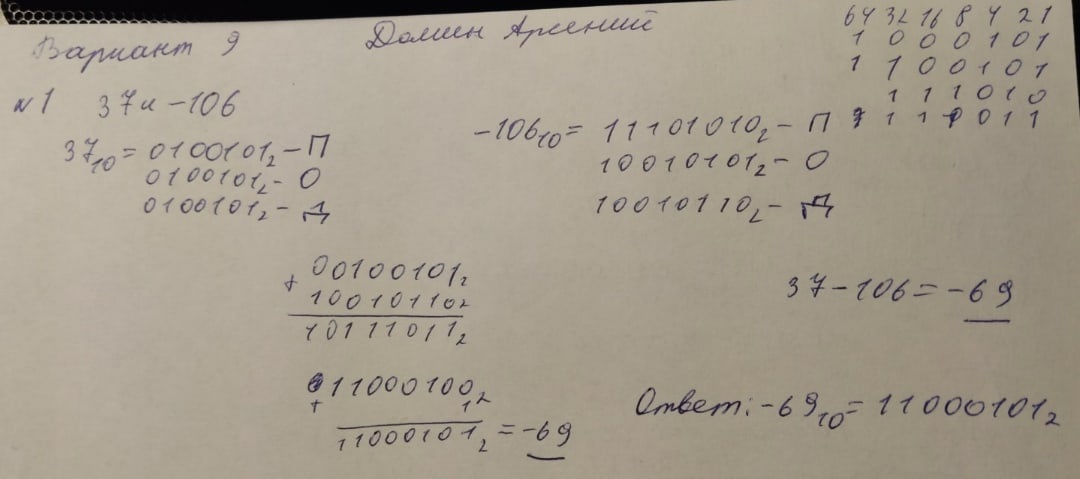 Вариант 9 Долин Арсений
64 32 16 8 4 2 1
1 0 0 0 1 0 1
1 1 0 0 1 0 1
1 1 1 0 1 0
1 1 0 1 1
№1 37 и -106
37₁₀ = 0100101₂ - П
0100101₂ - О
0100101₂ - Д
-106₁₀ = 11101010₂ - П
10010101₂ - О
10010110₂ - Д
00100101₂
+
10010110₂
10111011₂
37 - 106 = -69
11000100₂
+
1₂
11000101₂ = -69
Ответ: -69₁₀ = 11000101₂